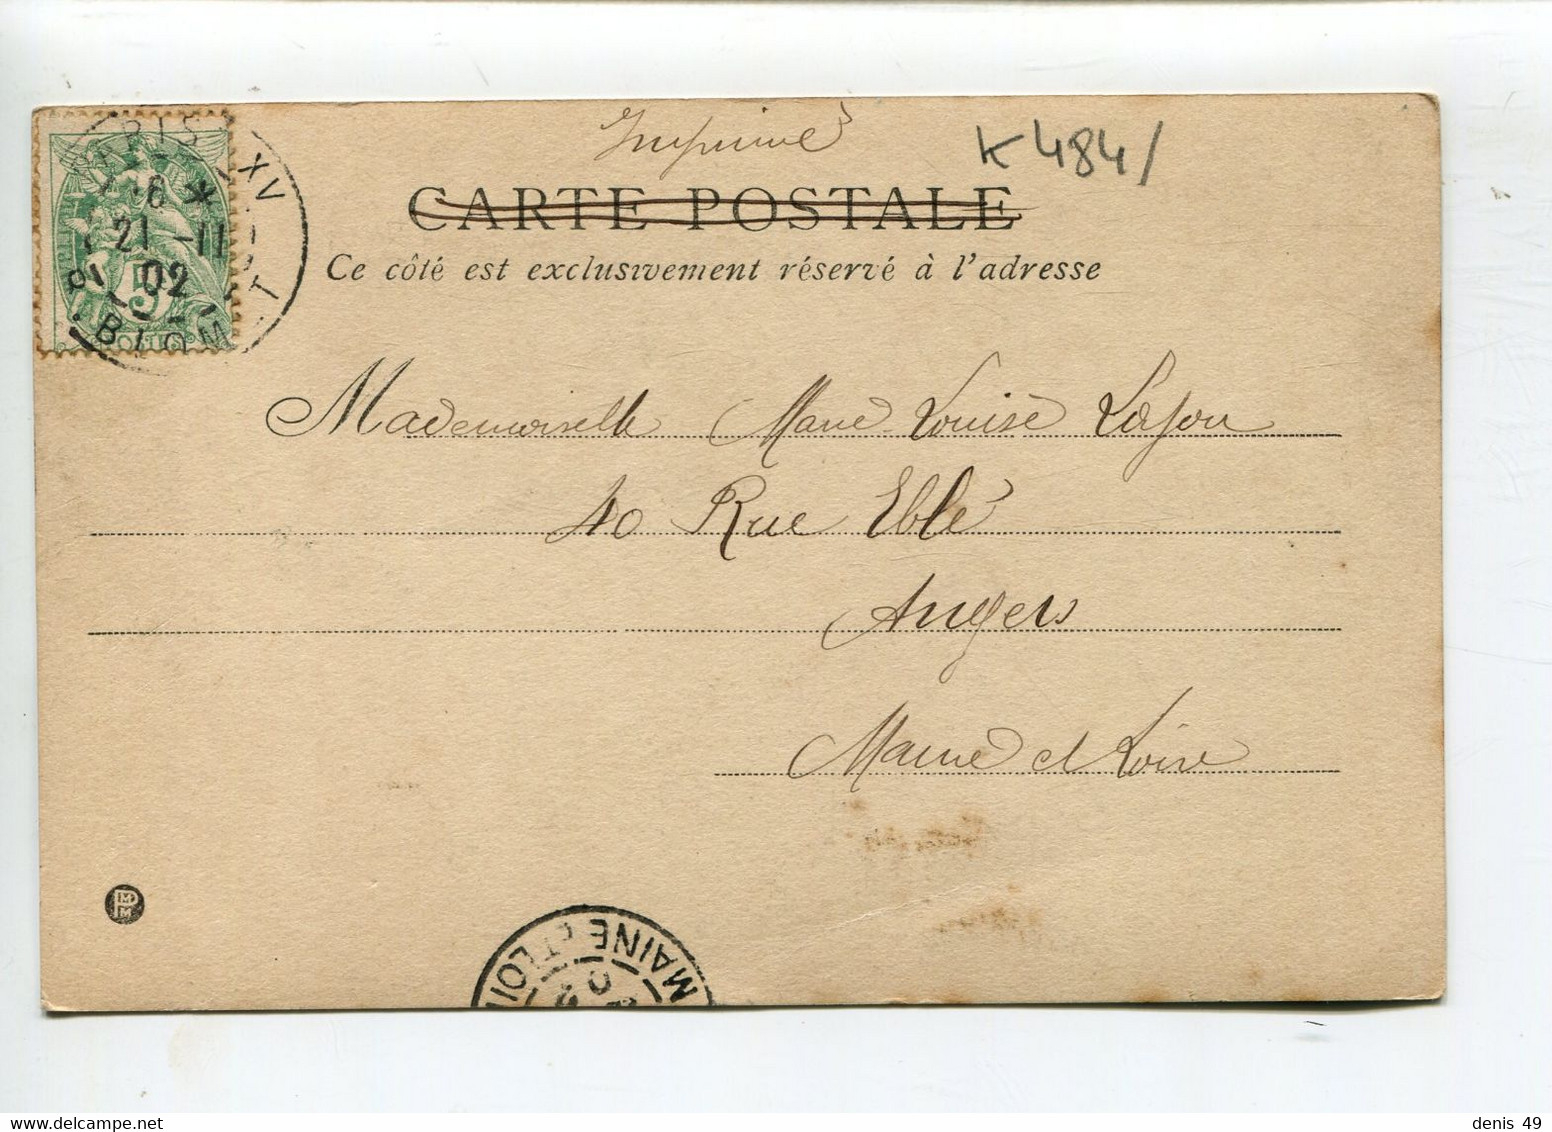 Imprimé
K 484/
CARTE POSTALE
Ce côté est exclusivement réservé à l'adresse
PARIS XV
6 *
21 -11
02
BLOM T
5
POSTES
Mademoiselle Marie Louise Lafon
40 Rue Eblé
Angers
Maine et Loire
MAINE ET LOI
denis 49